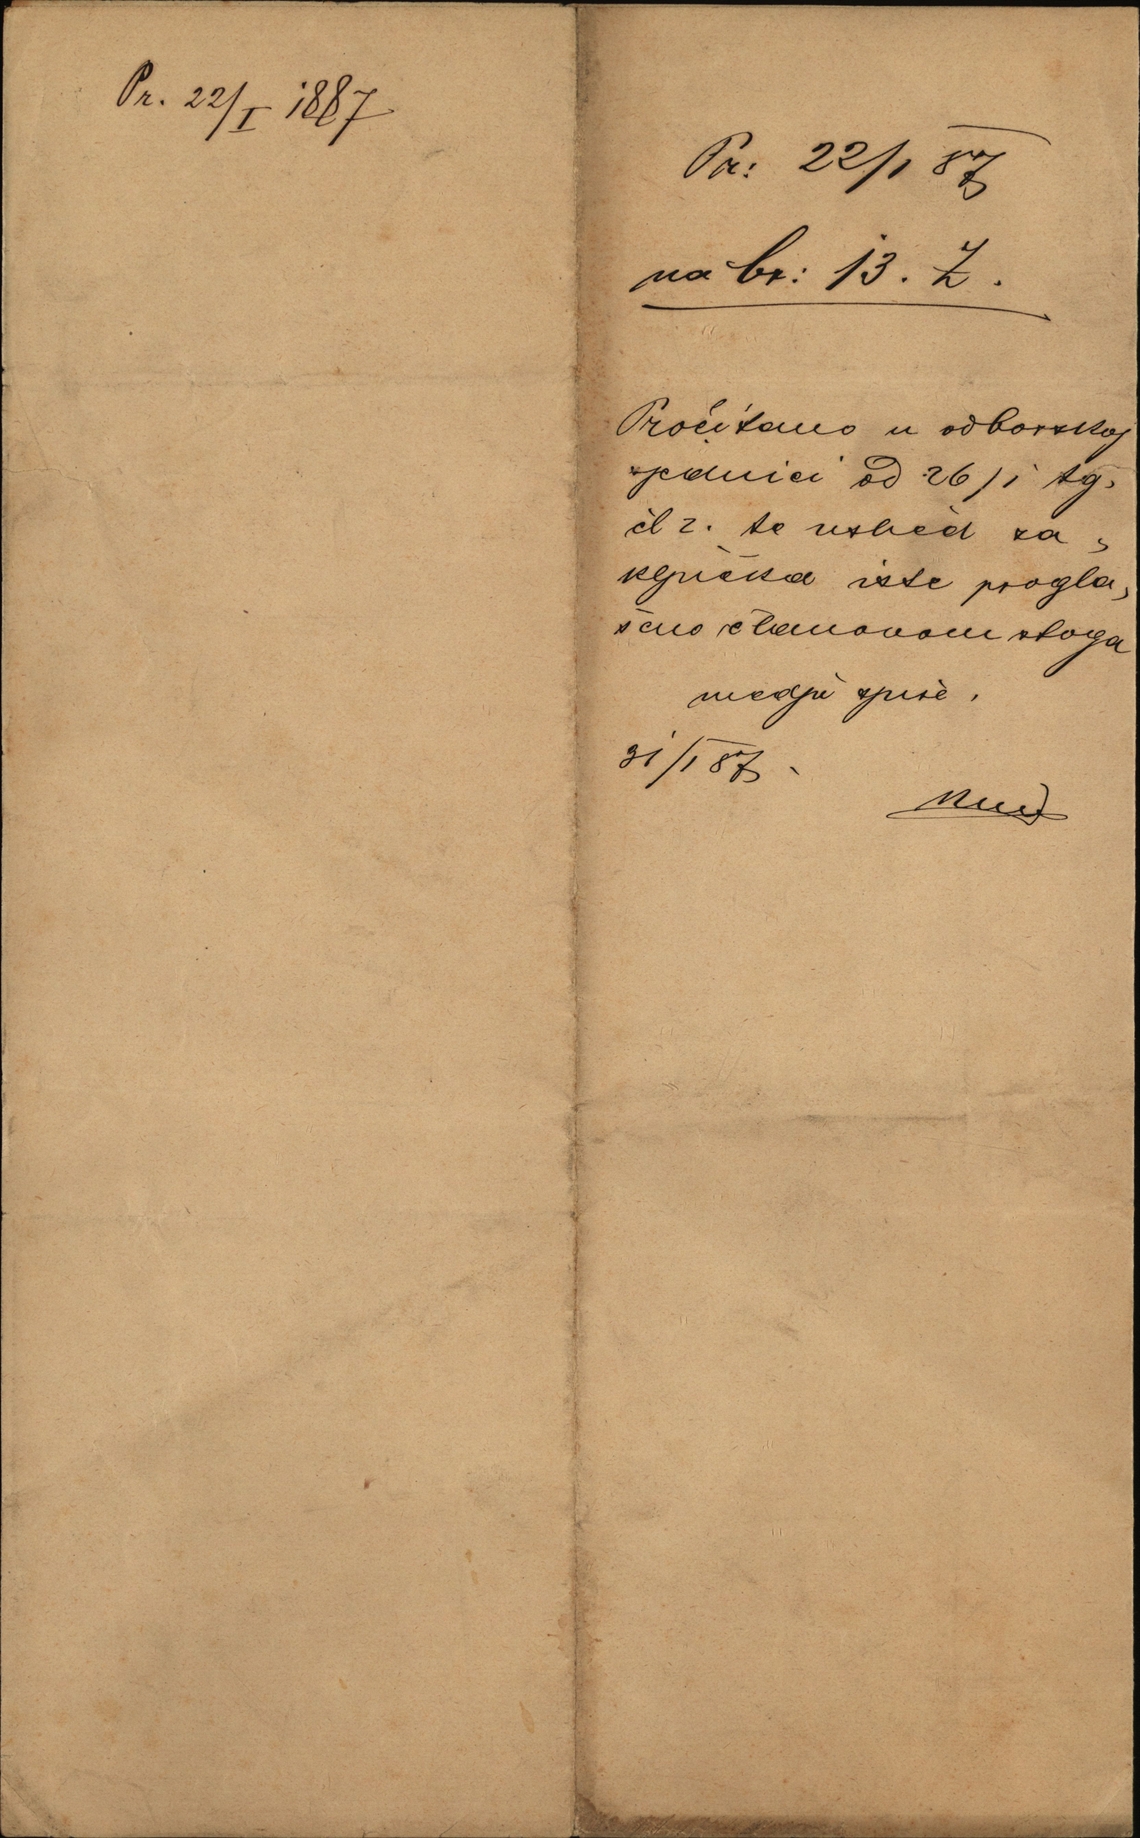 Pr. 22/I 1887
Pr: 22/1 87
na br: 13. Z.
Pročitano u odborskoj
sjednici od 26/1 tg.
te usled za„
ključka iste progla„
šeno članovom stoga
medju spise.
31/1 87.